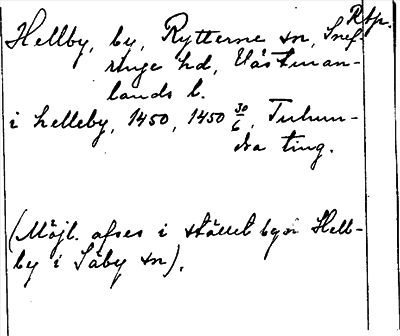 Rtjr.
Hellby, by, Rytterne sn, Snef-
ringe hd, Västman-
lands l.
i helleby, 1450, 1450 30/6, Tuhun-
dra ting.
(Möjl. afses i stället byn Hell-
by i Säby sn).